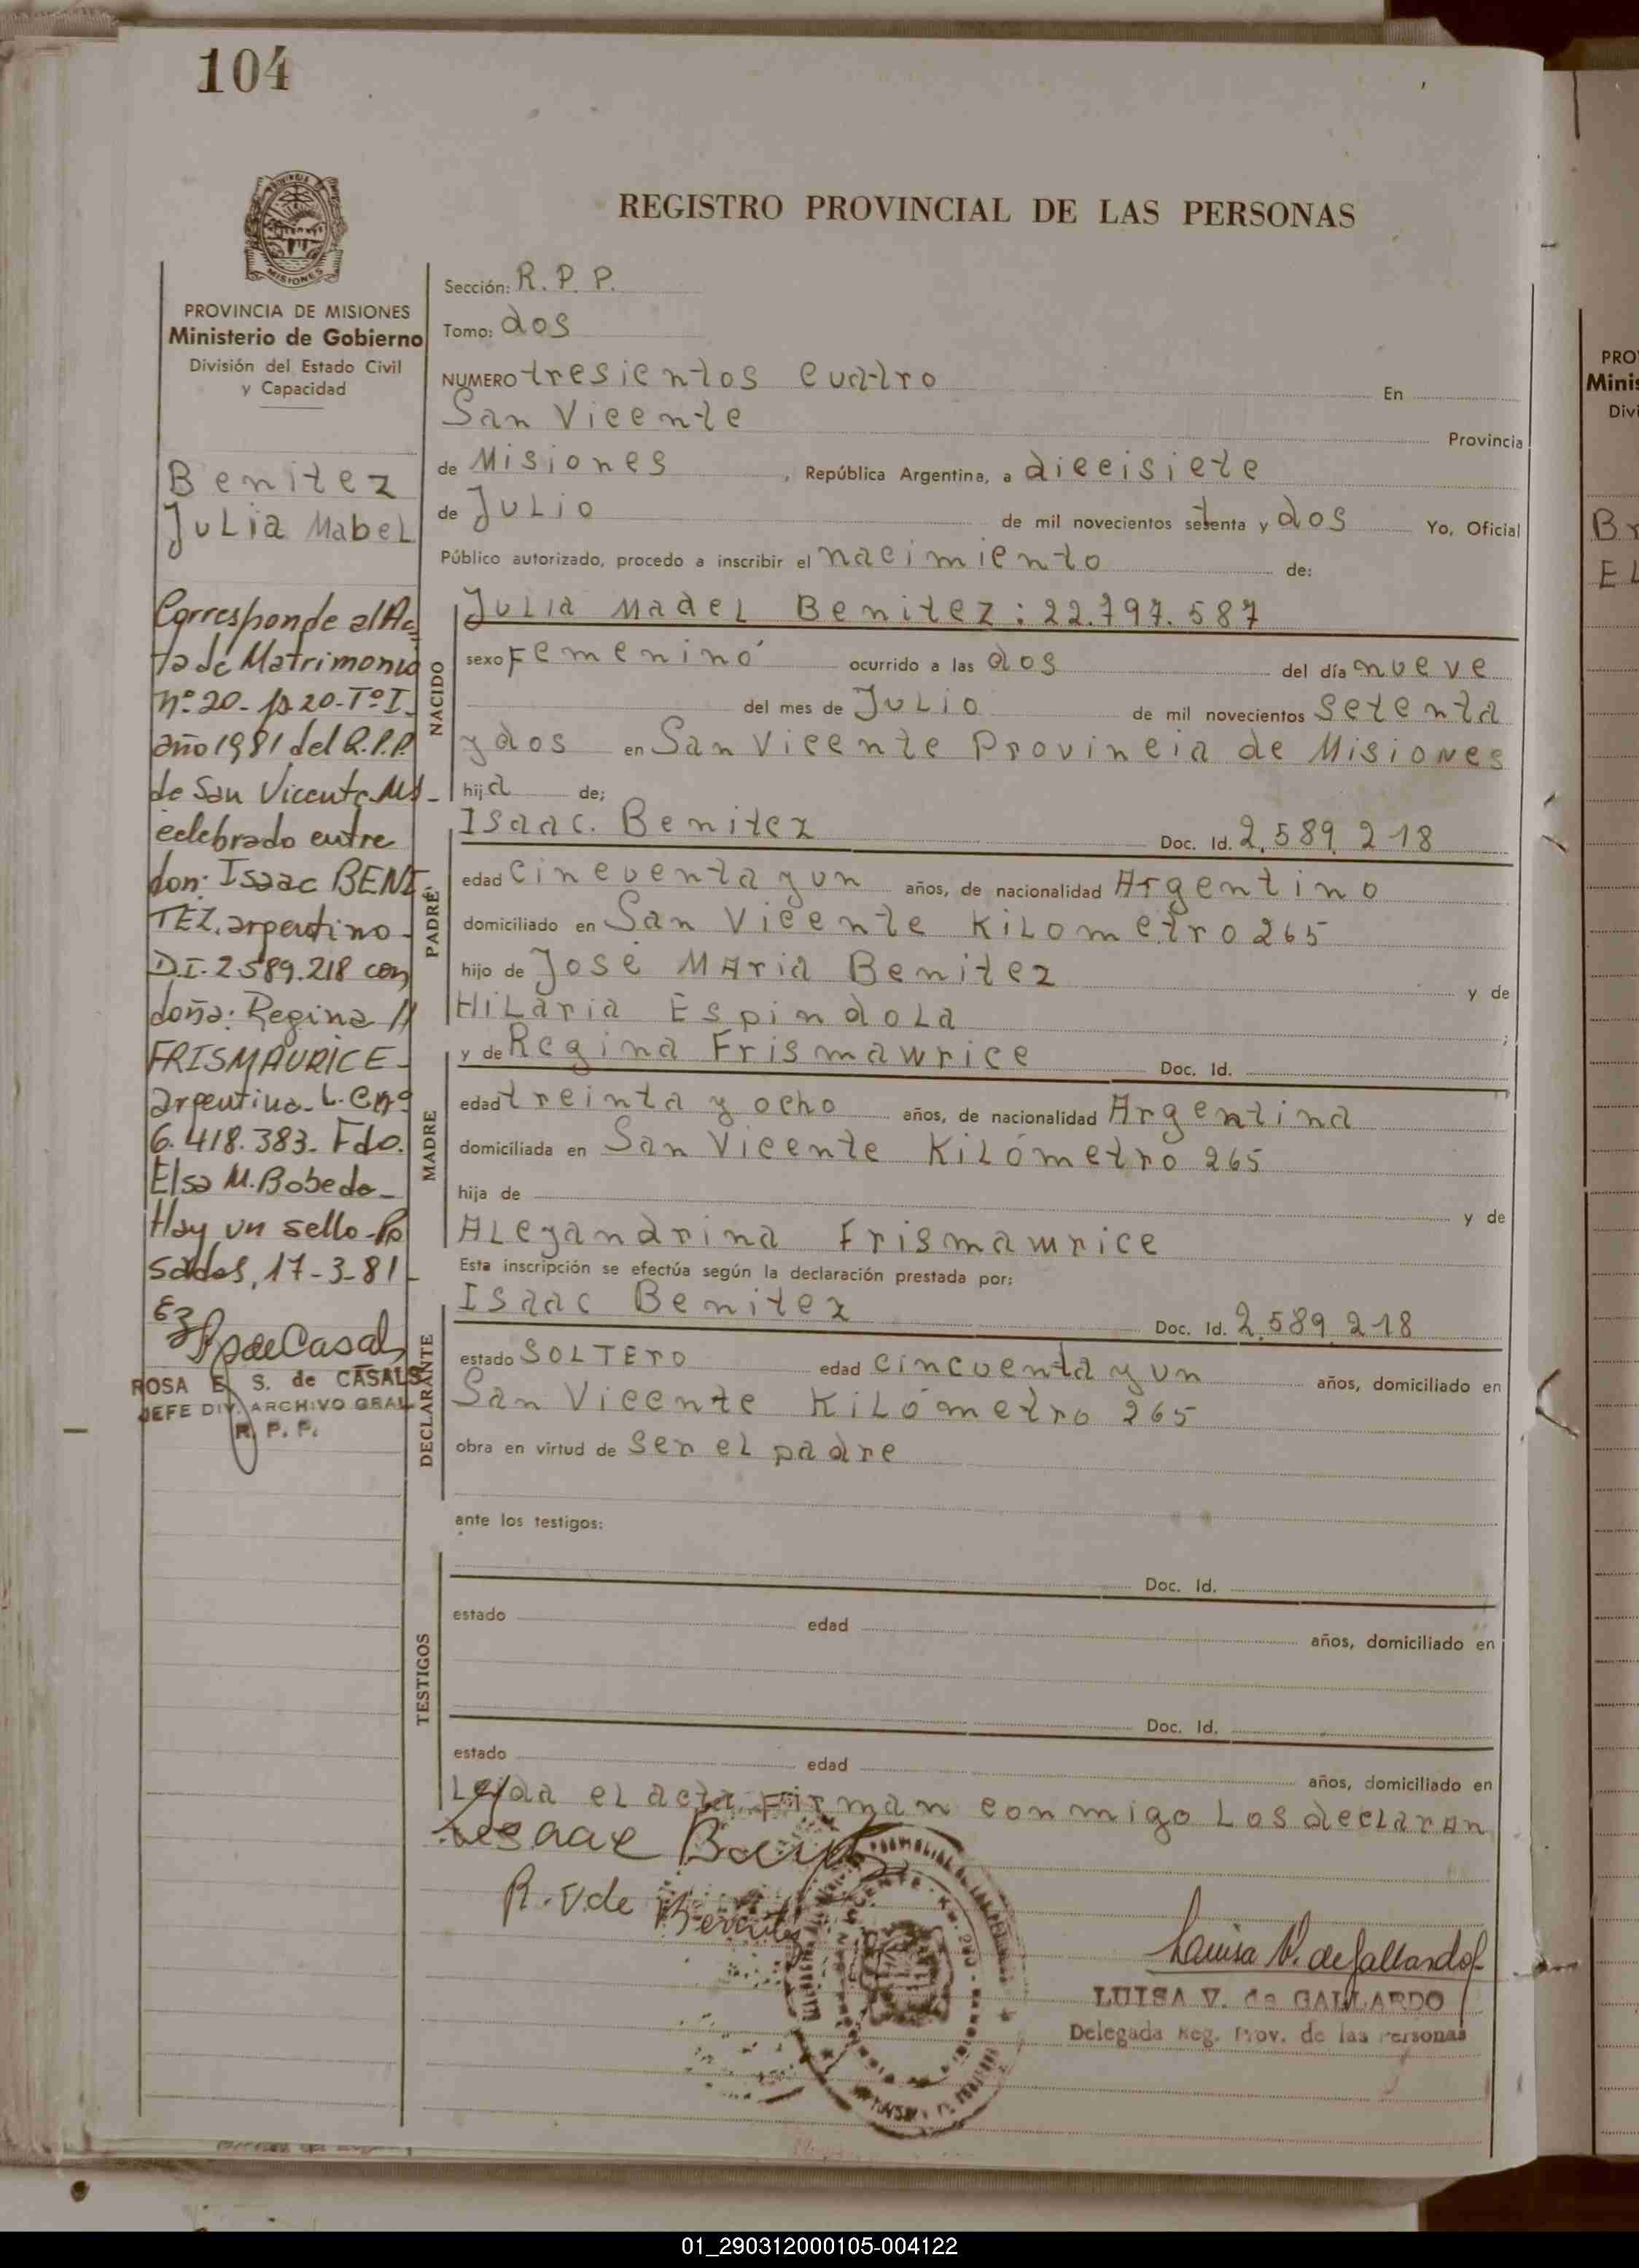 104
REGISTRO PROVINCIAL DE LAS PERSONAS
MISIONES
PROVINCIA DE MISIONES
Ministerio de Gobierno
División del Estado Civil
y Capacidad
Benitez
Julia Mabel
Corresponde al Ac
ta de Matrimonio
Nº 20- Fº 20-Tº I-
año 1981 del R.P.P.
de San Vicente Ms-
celebrado entre
don: Isaac BENI
TEZ, argentino-
D.I. 2589.218 con
doña: Regina
FRISMAURICE-
argentina-L.Cng
6.418.383- Fdo.
Elsa M. Bobeda-
Hay un sello-Po
sadas, 17-3-81-
ROSA E. S. de CASALS
JEFE DIV. ARCHIVO GRAL.
R. P. P.
Sección: R. P. P.
Tomo: dos
NUMERO tresientos cuatro En
San Vicente Provincia
de Misiones, República Argentina, a diecisiete
de Julio de mil novecientos setenta y dos Yo, Oficial
Público autorizado, procedo a inscribir el nacimiento de:
NACIDO
Julia Madel Benitez: 22.797.587
sexo Femenino ocurrido a las dos del día nueve
del mes de Julio de mil novecientos setenta
y dos en San Vicente Provincia de Misiones
hija de;
PADRE
Isaac. Benitez Doc. Id. 2.589.218
edad cincuenta y un años, de nacionalidad Argentino
domiciliado en San Vicente Kilometro 265
hijo de José Maria Benitez y de
Hilaria Espindola ;
MADRE
y de Regina Frismawrice Doc. Id.
edad treinta y ocho años, de nacionalidad Argentina
domiciliada en San Vicente Kilómetro 265
hija de y de
Aleyandrina Frismawrice
Esta inscripción se efectúa según la declaración prestada por:
DECLARANTE
Isaac Benitez Doc. Id. 2.589.218
estado SOLTERO edad cincuenta y un años, domiciliado en
San Vicente Kilómetro 265
obra en virtud de ser el padre
ante los testigos:
TESTIGOS
Doc. Id.
estado edad años, domiciliado en
Doc. Id.
estado edad años, domiciliado en
Leida el acta Firman conmigo Los declaran
R. V. de
Luisa V. de Gallardo
LUISA V. de GALLARDO
Delegada Reg. Prov. de las Personas
PRO
Minis
Divi
Br
EL
01_290312000105-004122